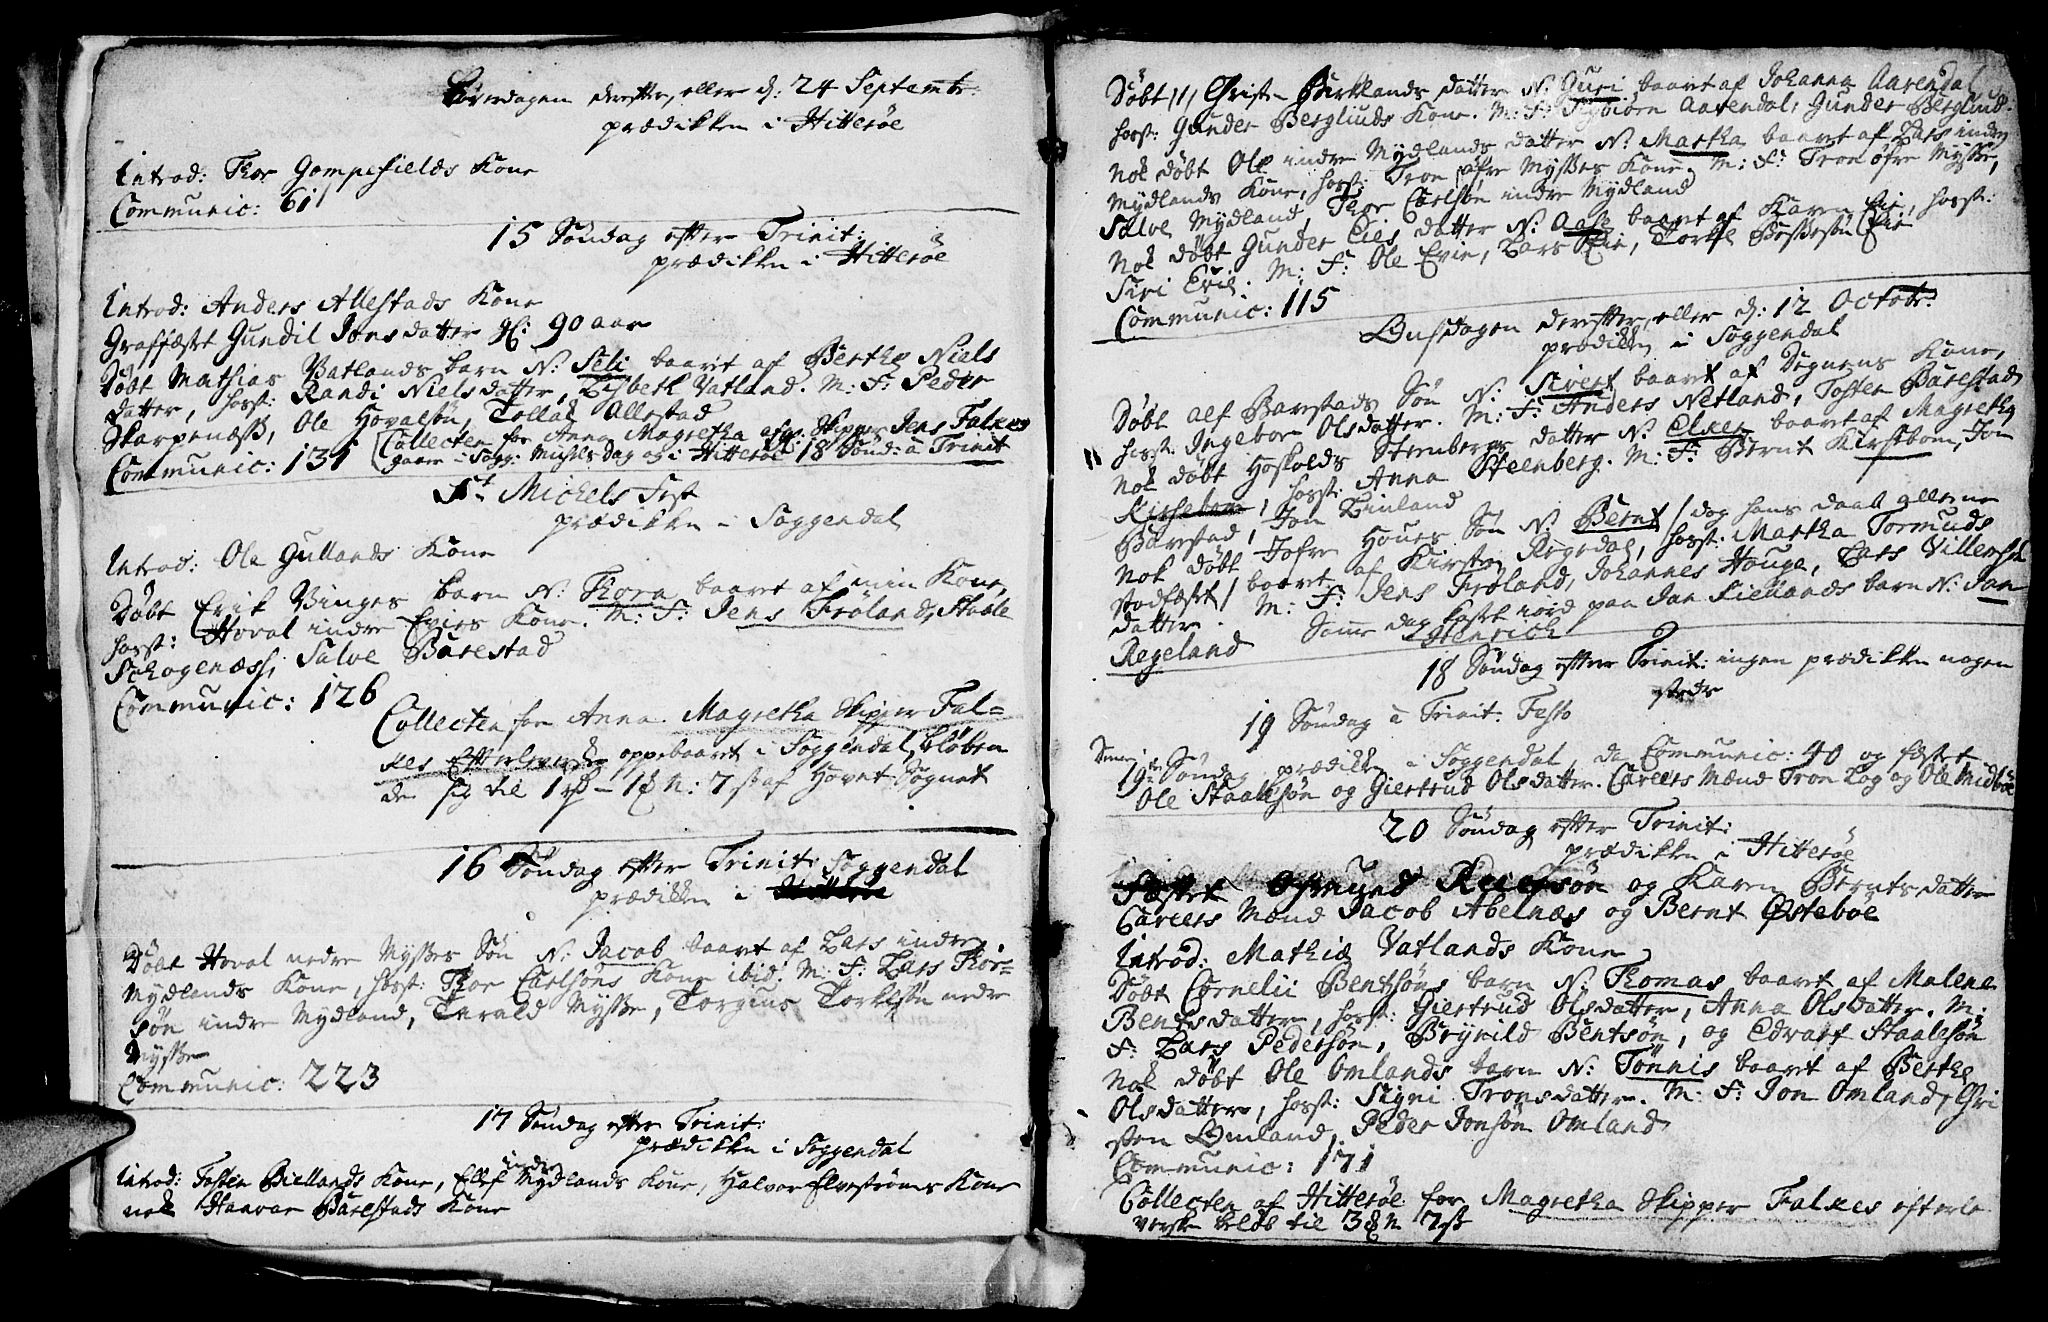 Løverdagen derefter, eller d: 24 Septembr:
prædikken i Hitterøe
Introd: Thor Gompefields Kone
Communic: 61
15 Søndag efter Trinit:
prædikken i Hitterøe
Introd: Anders Allestads Kone
Graffæstet Gundil Jonsdatter gl: 90 aar
Døbt Mathias Vatlands barn N: Seli baaret af Berthe Niels
datter, hosst: Randi Nielsdatter, Lisbeth Vatland. M: F: Peder
Skarpenæss, Ole Hovalsøn, Tollak Allestad
Communic: 131 (Collecten for Anna Magretha afg: Skipper Jens Falkes
gaaer i Sogg: Michelsdag og i Hitterøe 18 Sønd: a Trinit
St Michels Fest
prædikken i Soggendal
Introd: Ole Gullands Kone
Døbt Erik Vinges barn N: Thora baaret af min Kone,
hosst: Hoval indre Evies Kone. M: F: Jens Frøland, Staale
Schogenæss, Salve Barestad
Communic: 126
Collecten for Anna Magretha Skipper Fal=
kes efterleverske oppebaaret i Soggendal, beløben
de sig til 1 rd - 1 ₰ N: 7 s af Hovet Sognet
16 Søndag efter Trinit: Soggendal
prædikken i Hitterøe
Døbt Hoval nedre Mysses Søn N: Jacob baaret af Lars indre
Mydlands Kone, hosst: Thor Carlsøns Kone ibid: M: F: Lars Thor=
søn indre Mydland, Tarald Mysse, Torgius Torkelsøn nedre
Mysse
Communic: 223
17 Søndag efter Trinit:
prædikken i Soggendal
Introd: Tosten Biellands Kone, Ellef indre Mydlands Kone, Halvor Elvestrøms Kone
nok Haavar Barestads Kone
Døbt Christen Birklands datter N: Guri baaret af Johanna Aarendal
hosst: Gunder Berglunds Kone. M: F: Aarendal, Gunder Berglund
Nok døbt Ole indre Mydlands datter N: Martha baaret af Lars indre
Mydlands Kone, hosst: Tron øfre Mysses Kone. M: F: Tron øfre Mysse,
Salve Mydland, Thor Carlsøn indre Mydland
Nok døbt Gunder Eies datter N: Aase baaret af Karen Eie, hosst:
Siri Evie. M: F: Ole Evie, Lars Eie, Torkel Eie
Communic: 115
Onsdagen derefter, eller d: 12 Octobr:
prædikken i Soggendal
Døbt Alf Barstads Søn N: Sivert baaret af Degnens Kone,
hosst: Ingebor Olsdatter. M: F: Anders Netland, Tosten Barestad
Nok døbt Hoskolds Stenbergs datter N: baaret af Magretha
Kirsebom, hosst: Anna Steenberg. M: F: Bernt Kirsebom, Jon
Barestad, Jon Linland
Nok døbt Jofre Houes Søn N: Bernt / dog hans daab allene
stadfæstet / baaret af Kirsten Regedal, hosst: Martha Tormuds
datter. M: F: Jens Frøland, Johannes Houge, Lars Villumsøn
Regeland Samme dag kastet iord paa Jan Fiellands barn N: Jan
Henrich
18 Søndag efter Trinit: ingen prædikken nogen
steds
19 Søndag a Trinit: Festo
19de Søndag prædikken i Soggendal, da Communic: 40 og fæstet
Ole Staalesøn og Giertrud Olsdatter. Careers Mænd Tron Log og Ole Midbøe
20 Søndag efter Trinit:
prædikken i Hitterøe
Fæstet Osmund Reiersøn og Karen Berntsdatter
Careers Mænd Jacob Abelnæs og Bernt Østebøe
Introd: Mathiæ Vatlands Kone
Døbt Cornelii Bentsøns barn N: Thomas baaret af Malene
Bentsdatter, hosst: Giertrud Olsdatter, Anna Olsdatter. M:
F: Lars Pedersøn, Brynild Bentsøn, og Edvart Staalesøn
Nok døbt Ole Omlands barn N: Tønnis baaret af Berthe
Olsdatter, hosst: Signi Tronsdatter. M: F: Jon Omland, Chri
sten Omland, Peder Jonsøn Omland
Communic: 171
Collecten af Hitterøe for Magretha Skipper Falkes efterle
verske beløb til 3 ₰ N 7 s